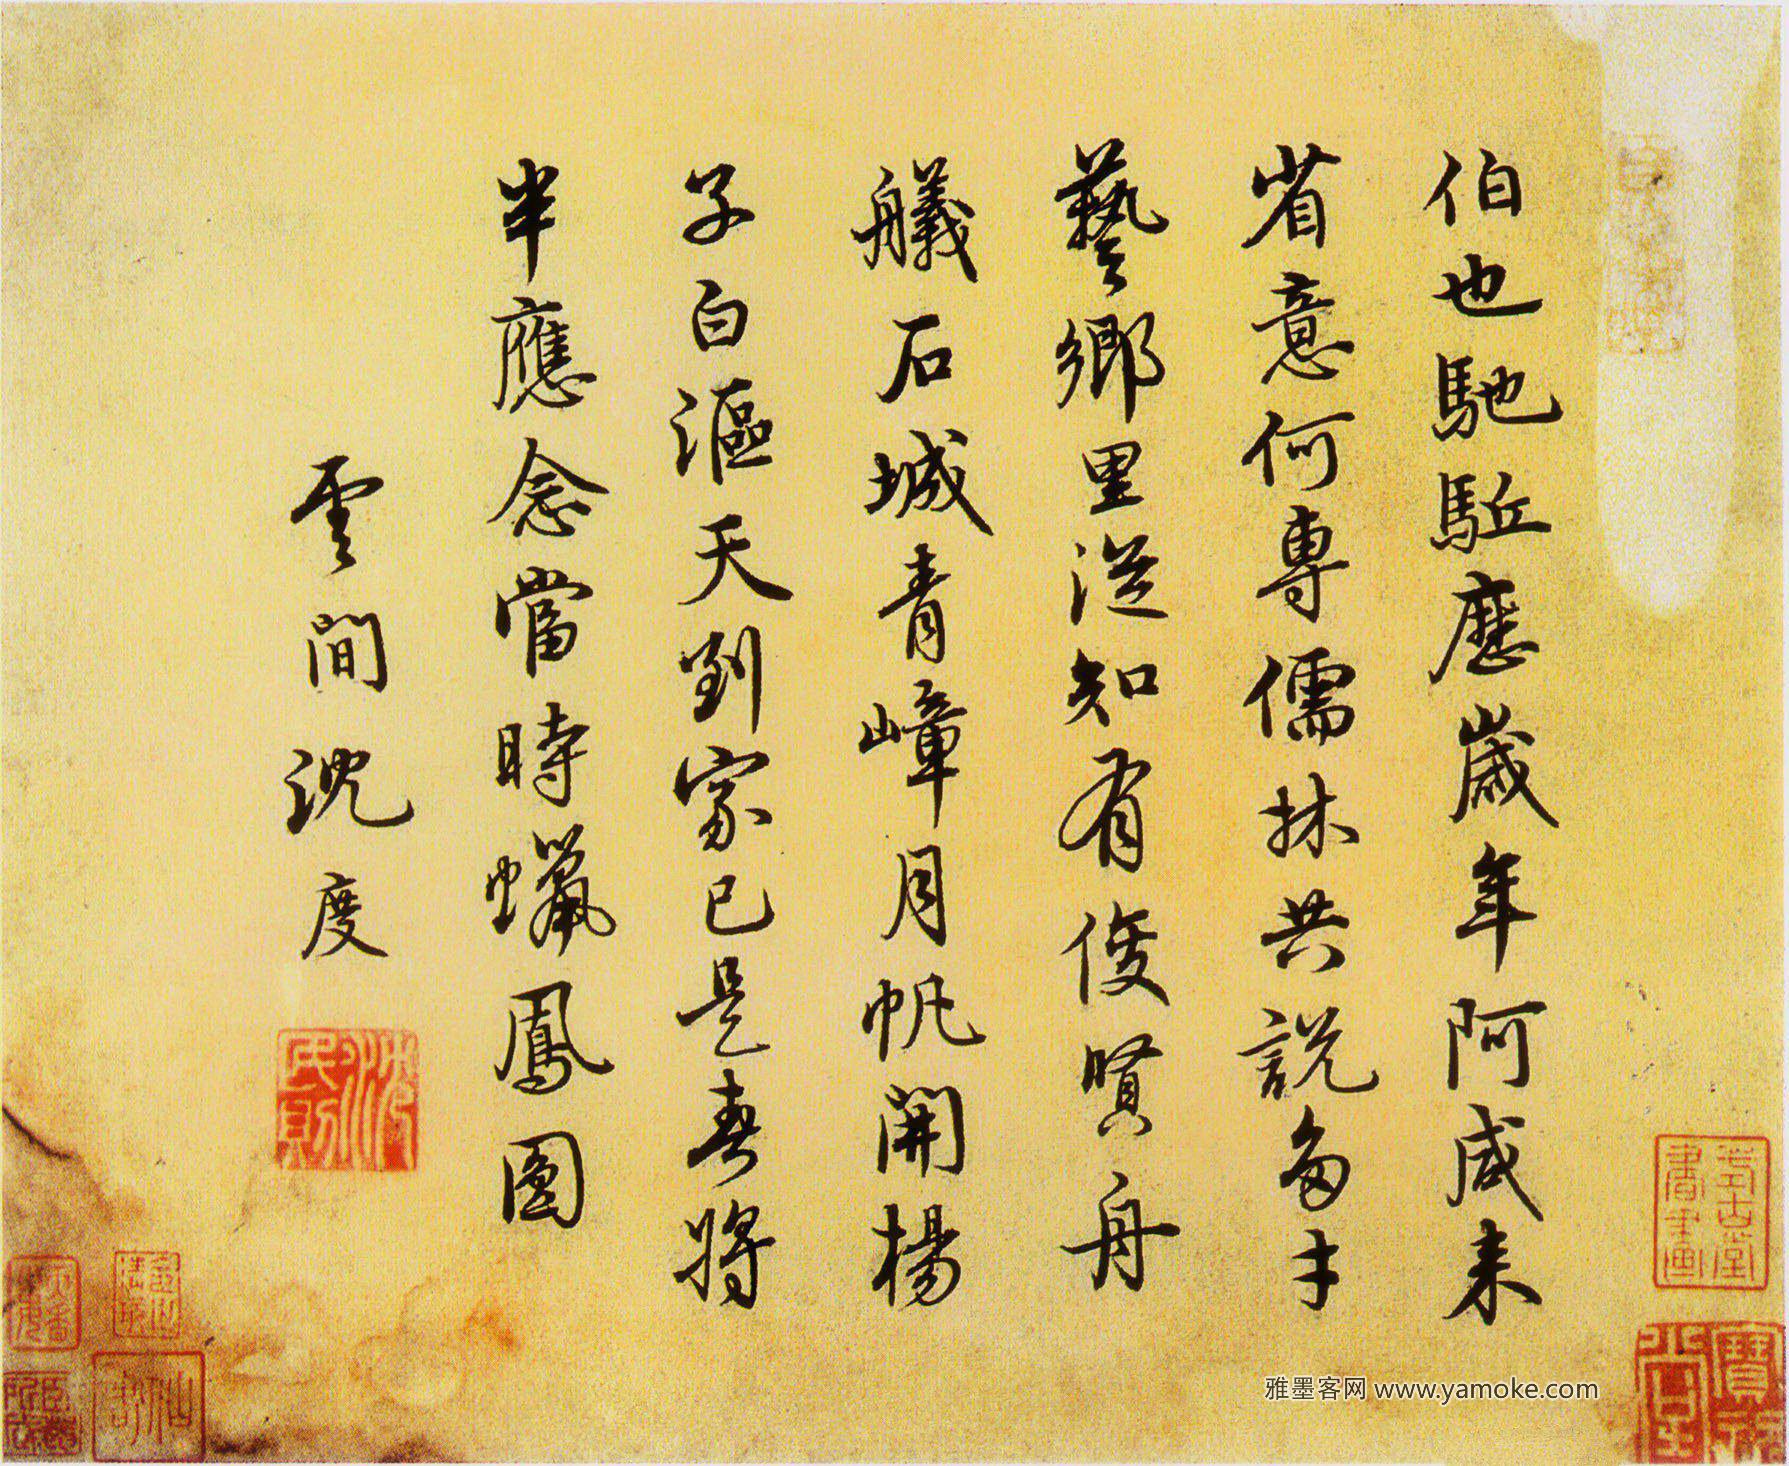 伯也馳駈歷歲年阿咸来
省意何專儒林共說多才
藝鄉里從知有俊賢舟
艤石城青嶂月帆開楊
子白漚天到家已是春將
半應念當時蠟鳳圓
雲間沈度
沈民則
雅墨客网 www.yamoke.com